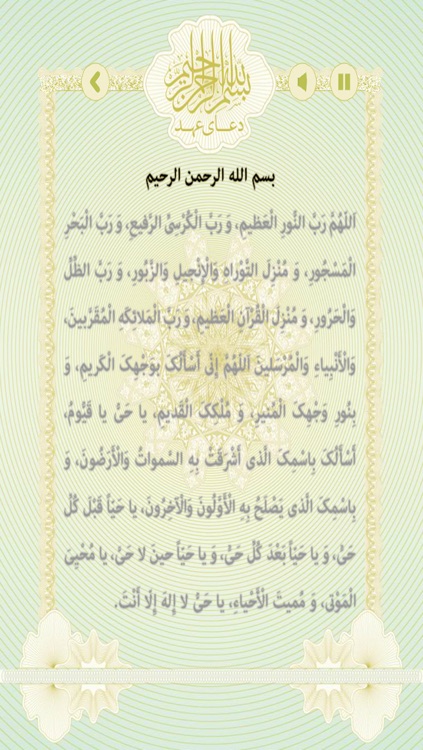 بسم الله الرحمن الرحیم
دعـــای عهــد
بسم الله الرحمن الرحیم
اَللّهُمَّ رَبَّ النُّورِ الْعَظیمِ، وَ رَبَّ الْکُرْسِیِّ الرَّفیعِ، وَ رَبَّ الْبَحْرِ
الْمَسْجُورِ، وَ مُنْزِلَ التَّوْراهِ وَالْاِنْجیلِ وَالزَّبُورِ، وَ رَبَّ الظِّلِّ
وَالْحَرُورِ، وَ مُنْزِلَ الْقُرْآنِ الْعَظیمِ، وَ رَبَّ الْمَلائِکَهِ الْمُقَرَّبینَ،
وَالْأَنْبِیاءِ وَالْمُرْسَلینَ اَللّهُمَّ إِنّی أَسْأَلُکَ بِوَجْهِکَ الْکَریمِ، وَ
بِنُورِ وَجْهِکَ الْمُنیرِ، وَ مُلْکِکَ الْقَدیمِ، یا حَیُّ یا قَیُّومُ،
أَسْأَلُکَ بِاسْمِکَ الَّذی أَشْرَقَتْ بِهِ السَّمواتُ وَالْأَرَضُونَ، وَ
بِاسْمِکَ الَّذی یَصْلَحُ بِهِ الْأَوَّلُونَ وَالْآخِرُونَ، یا حَیّاً قَبْلَ کُلِّ
حَیٍّ، وَ یا حَیّاً بَعْدَ کُلِّ حَیٍّ، وَ یا حَیّاً حینَ لا حَیَّ، یا مُحْیِیَ
الْمَوْتى، وَ مُمیتَ الْأَحْیاءِ، یا حَیُّ لا إِلهَ إِلّا أَنْتَ.